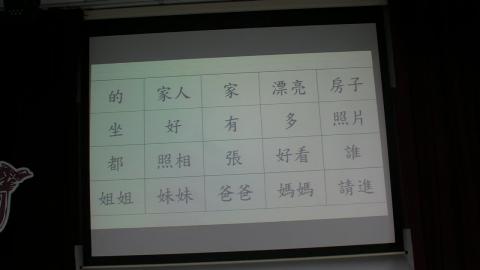 的 家人 家 漂亮 房子
坐 好 有 多 照片
都 照相 張 好看 誰
姐姐 妹妹 爸爸 媽媽 請進